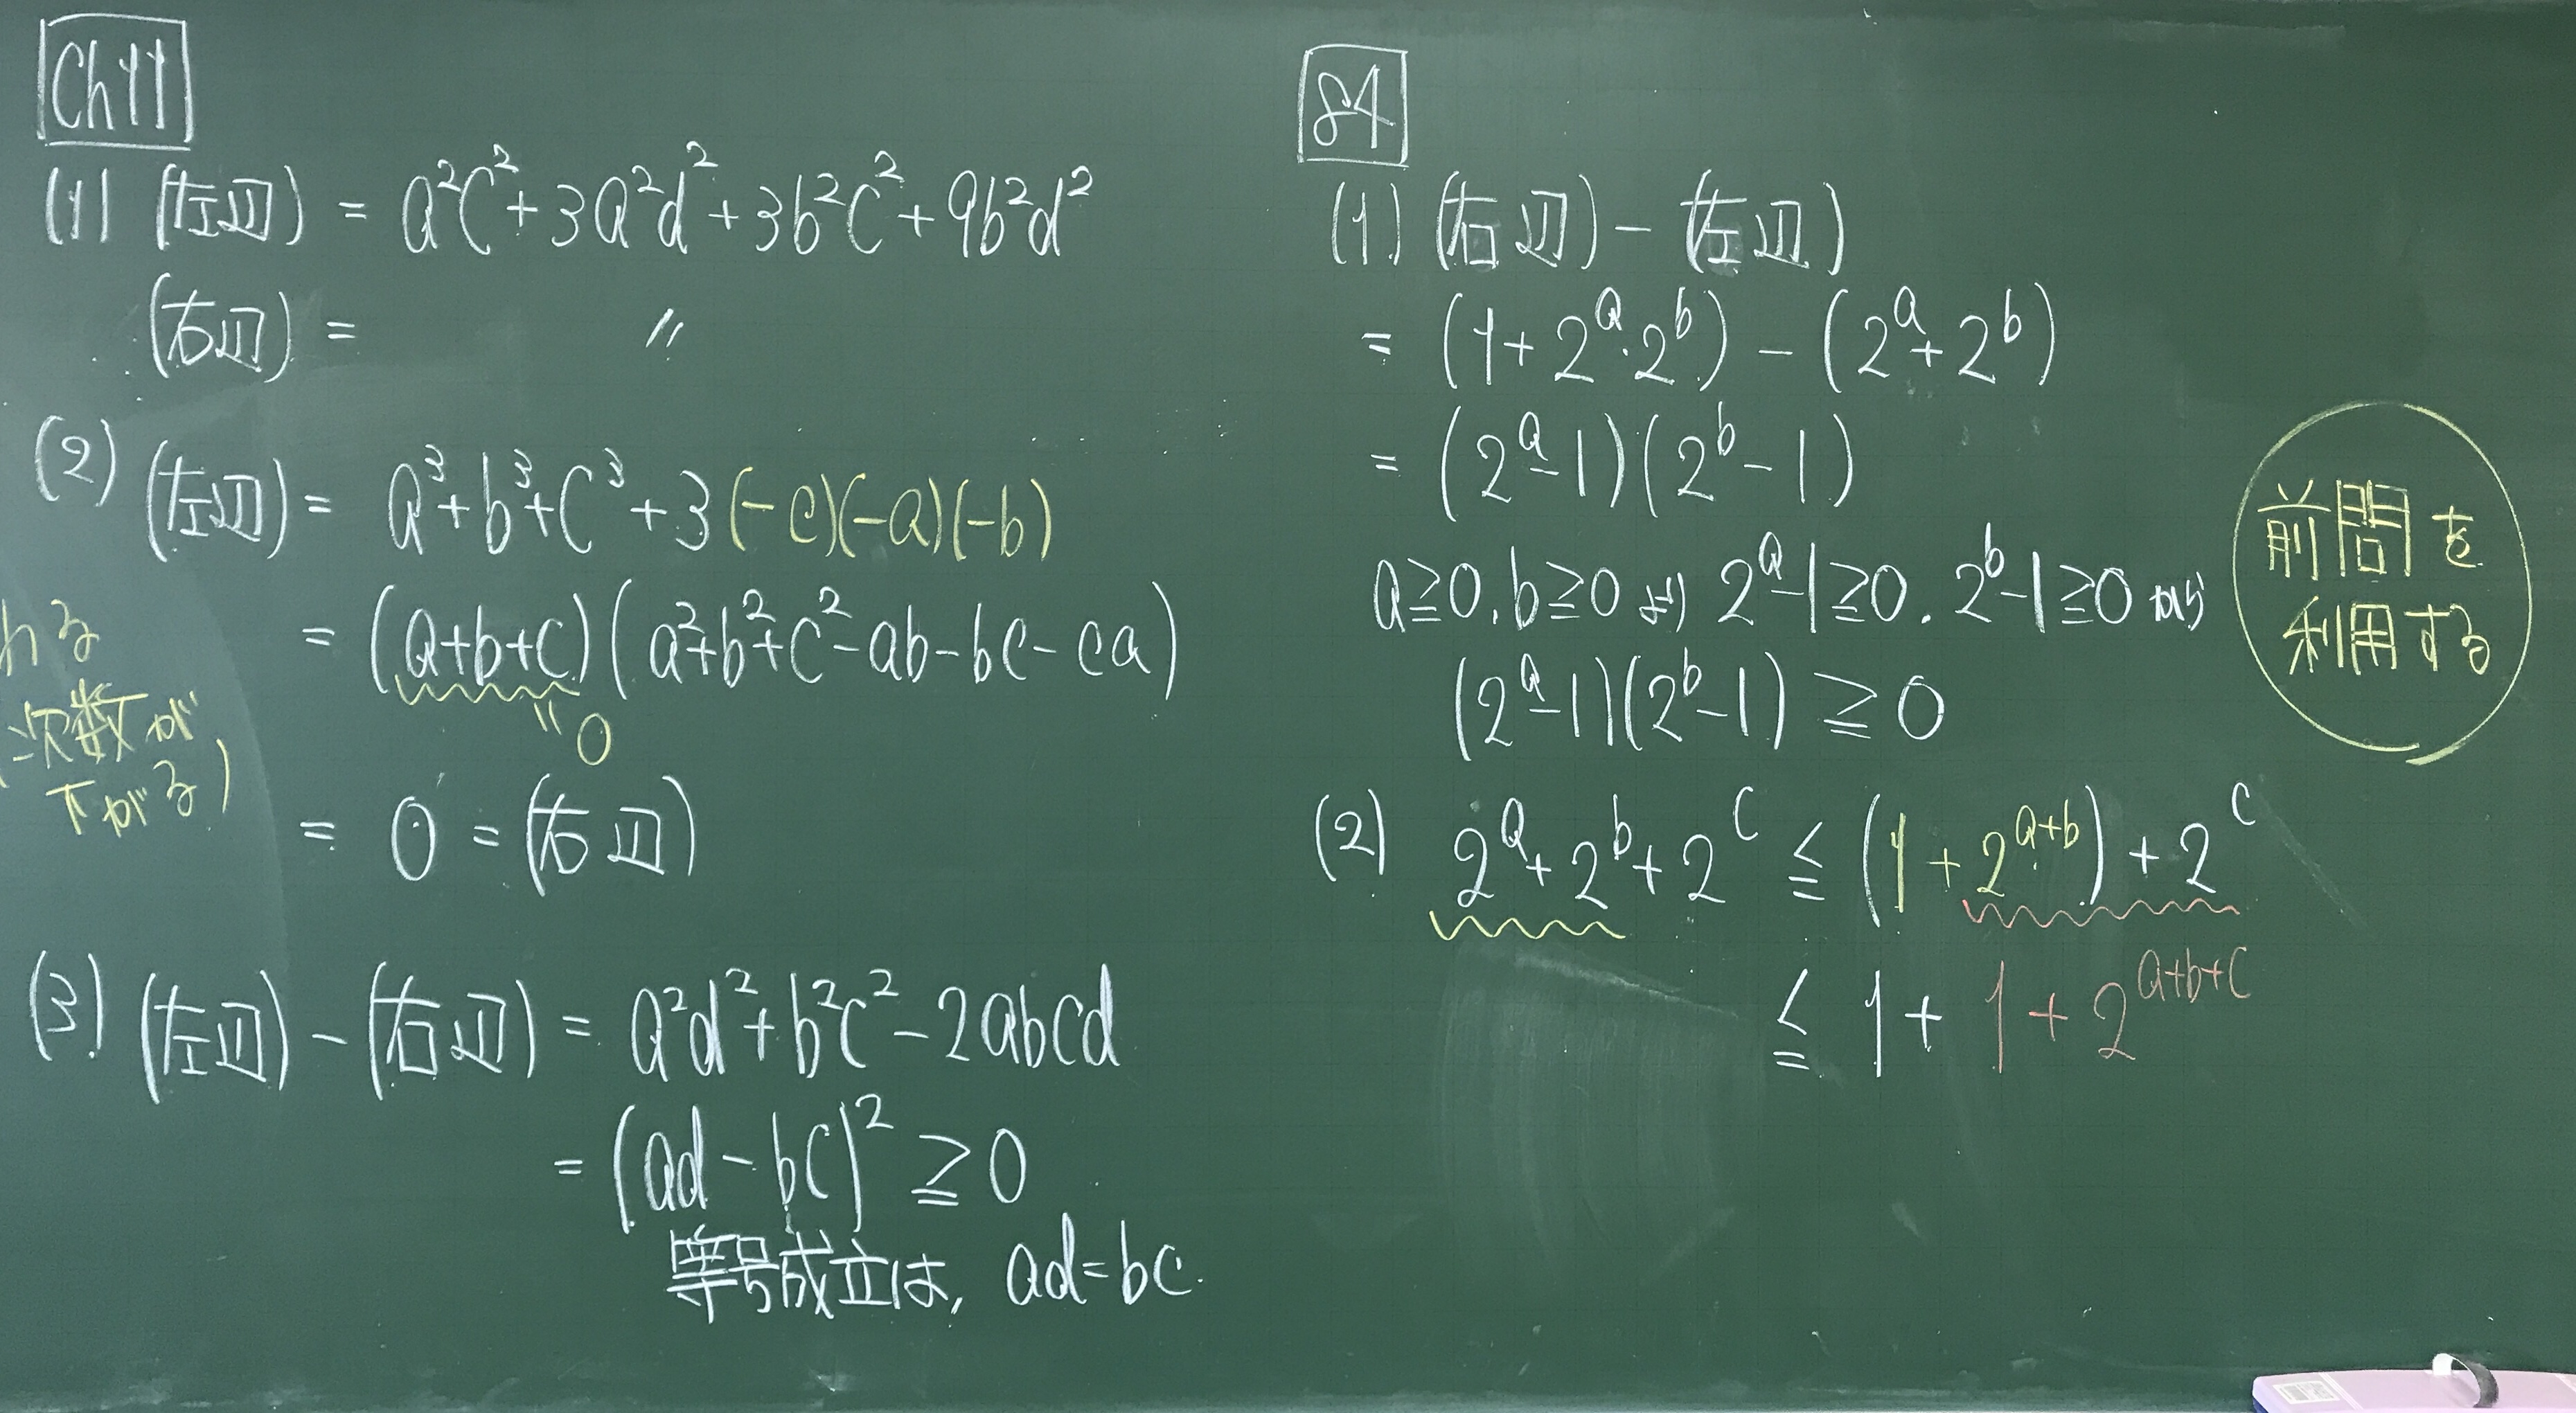 Ch11
(1) (左辺) = a²c²+3a²d²+3b²c²+9b²d²
(右辺) = 〃
(2) (左辺) = a³+b³+c³+3(-c)(-a)(-b)
= (a+b+c)(a²+b²+c²-ab-bc-ca)
〃0
= 0 = (右辺)
れる
次数が
下がる)
(3) (左辺) - (右辺) = a²d²+b²c²-2abcd
= (ad-bc)² ≧ 0
等号成立は, ad=bc.
84
(1) (右辺) - (左辺)
= (1+2^a·2^b) - (2^a+2^b)
= (2^a-1)(2^b-1)
a≧0, b≧0 より 2^a-1≧0. 2^b-1≧0 から
(2^a-1)(2^b-1) ≧ 0
(2) 2^a+2^b+2^c ≦ (1+2^{a+b})+2^c
≦ 1+1+2^{a+b+c}
前問を
利用する